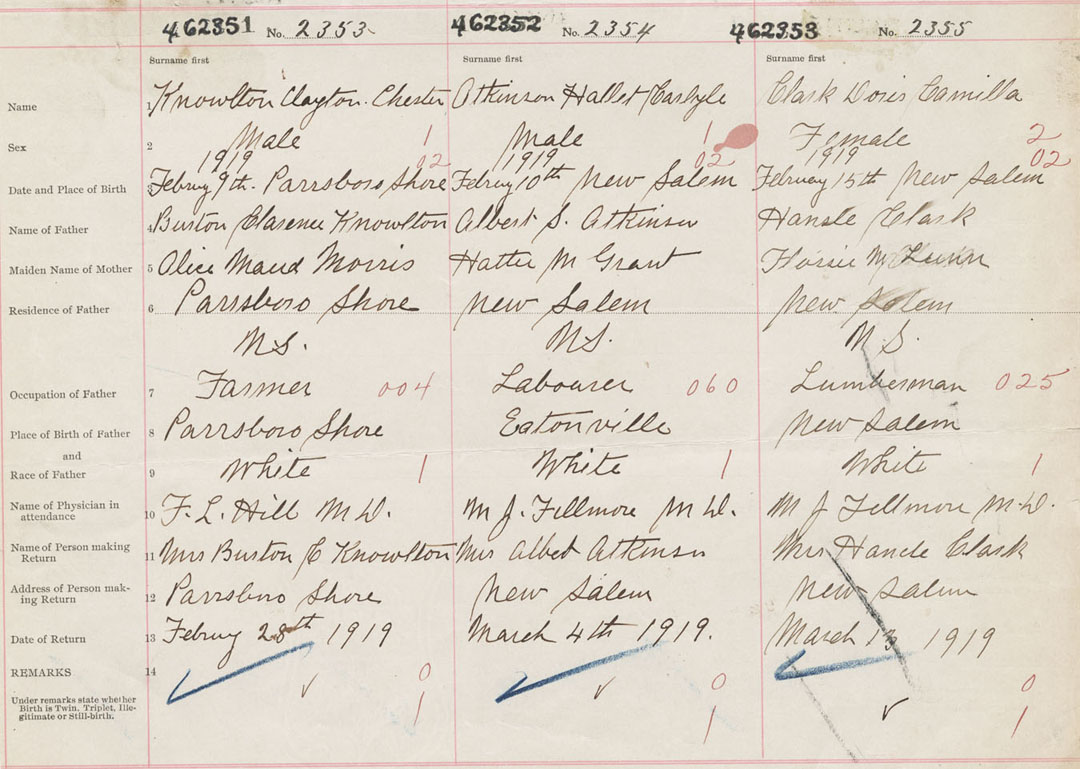 462351 No. 2353 462352 No. 2354 462353 No. 2355
Surname first Surname first Surname first
Name 1 Knowlton Clayton Chester Atkinson Hallet Carlyle Clark Doris Camilla
Sex 2 Male 1 Male 1 Female 2
1919 02 1919 02 1919 02
Date and Place of Birth 3 Februy 9th. Parrsboro Shore Februy 10th New Salem February 15th New Salem
Name of Father 4 Burton Clarence Knowlton Albert S. Atkinson Clark
Maiden Name of Mother 5 Alice Maud Morris Hattie M Grant
Residence of Father 6 Parrsboro Shore New Salem New Salem
N.S. N.S. N.S.
Occupation of Father 7 Farmer 004 Labourer 060 Lumberman 025
Place of Birth of Father 8 Parrsboro Shore Eatonville New Salem
and
Race of Father 9 White 1 White 1 White 1
Name of Physician in
attendance 10 F. L. Hill M.D. M J. Fillmore M.D. M J Fillmore M.D.
Name of Person making
Return 11 Mrs Burton C Knowlton Mrs Albert Atkinson Mrs Clark
Address of Person mak-
ing Return 12 Parrsboro Shore New Salem New Salem
Date of Return 13 Februy 28th 1919 March 4th 1919. March 1919
REMARKS 14 0 0 0
Under remarks state whether
Birth is Twin, Triplet, Ille-
gitimate or Still-birth. 1 1 1